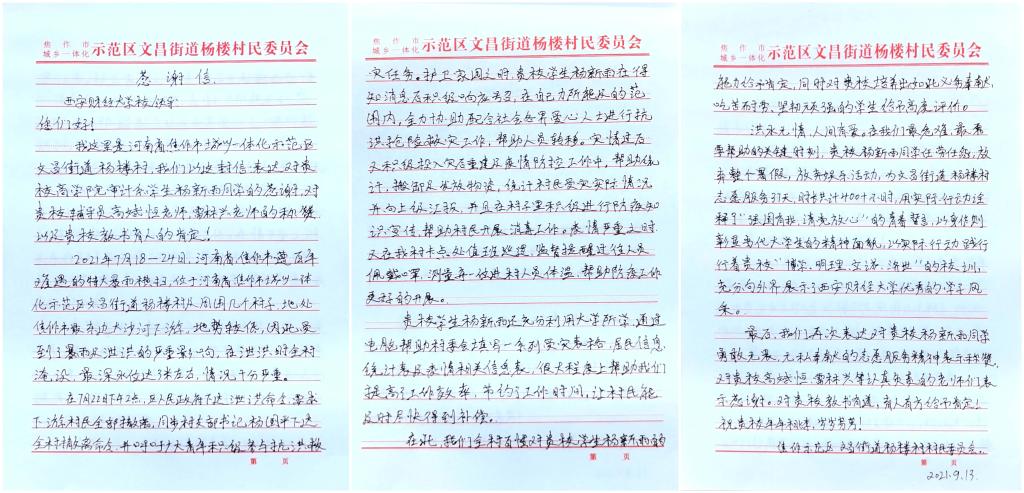 焦作市
城乡一体化 示范区文昌街道杨楼村民委员会
感谢信
西安财经大学校领导
你们好！
我这里是河南省焦作市城乡一体化示范区
文昌街道杨楼村，我们以这封信表达对贵
校商学院审计系学生杨新雨同学的感谢，对
贵校辅导员高婉恒老师，雷林兴老师的
以及贵校教书育人的肯定！
2021年7月18—24日，河南省焦作市遭百年
难遇的特大暴雨横扫，位于河南省焦作市城乡一体
化示范区文昌街道杨楼村及周围几个村子，地处
焦作市最东边大沙河下游，地势较低，因此受
到了暴雨及泄洪的严重影响，在泄洪时全村
淹没，最深水位达3米左右，情况十分严重。
在7月22日下午2点，区人民政府下达泄洪命令，要求
下游村民全部撤离，同步村支部书记杨国平下达
全村撤离命令，并呼吁广大青年积极参与抗洪救
第 页
焦作市
城乡一体化 示范区文昌街道杨楼村民委员会
灾任务。护卫家园之时，贵校学生杨新雨在得
知消息后积极响应号召，在自己力所能及的范
围内，全力协助配合社会各界爱心人士进行抗
洪抢险救灾工作，帮助人员转移。灾情过后
又积极投入灾后重建及疫情防控工作中，帮助统
计，搬卸及发放物资，统计村民受灾实际情况
并向上级汇报，并且在村子里积极进行防疫知
识宣传，帮助村民开展消毒工作。疫情严重之时
又在我村卡点处值班巡逻，监督提醒过往人员
佩戴口罩，测量每一位进村人员体温，帮助防疫工作
更好的开展。
贵校学生杨新雨还充分利用大学所学，通过
电脑帮助村委会填写一系列受灾表格，居民信息
统计表及疫情相关信息表，很大程度上帮助我们
提高工作效率，节约工作时间，让村民能
及时尽快得到补偿。
在此，我们全村百姓对贵校学生杨新雨的
第 页
焦作市
城乡一体化 示范区文昌街道杨楼村民委员会
能力给予肯定，同时对贵校培养出如此义务奉献，
吃苦耐劳、坚韧顽强的学生给予高度评价。
洪水无情，人间有爱。在我们最危难、最需
要帮助的关键时刻，贵校杨新雨同学任劳任怨，放
弃整个暑假，放弃娱乐活动，为文昌街道杨楼村
志愿服务37天，时长共计400个小时，用实际行动诠
释了“强国有我，请党放心”的青春誓言，以身作则
彰显当代大学生的精神面貌，以实际行动践行
着贵校“博学、明理、交诚、济世”的校训，
充分向外界展示了西安财经大学优秀的学子风
采。
最后，我们再次表达对贵校杨新雨同学
勇敢无畏、无私奉献的志愿服务精神表示称赞，
对贵校高婉恒，雷林兴等认真负责的老师们表
示感谢。对贵校教书有道，育人有方给予肯定！
祝贵校年年桃李，岁岁芬芳！
焦作示范区文昌街道杨楼村村民委员会
2021.9.13
第 页